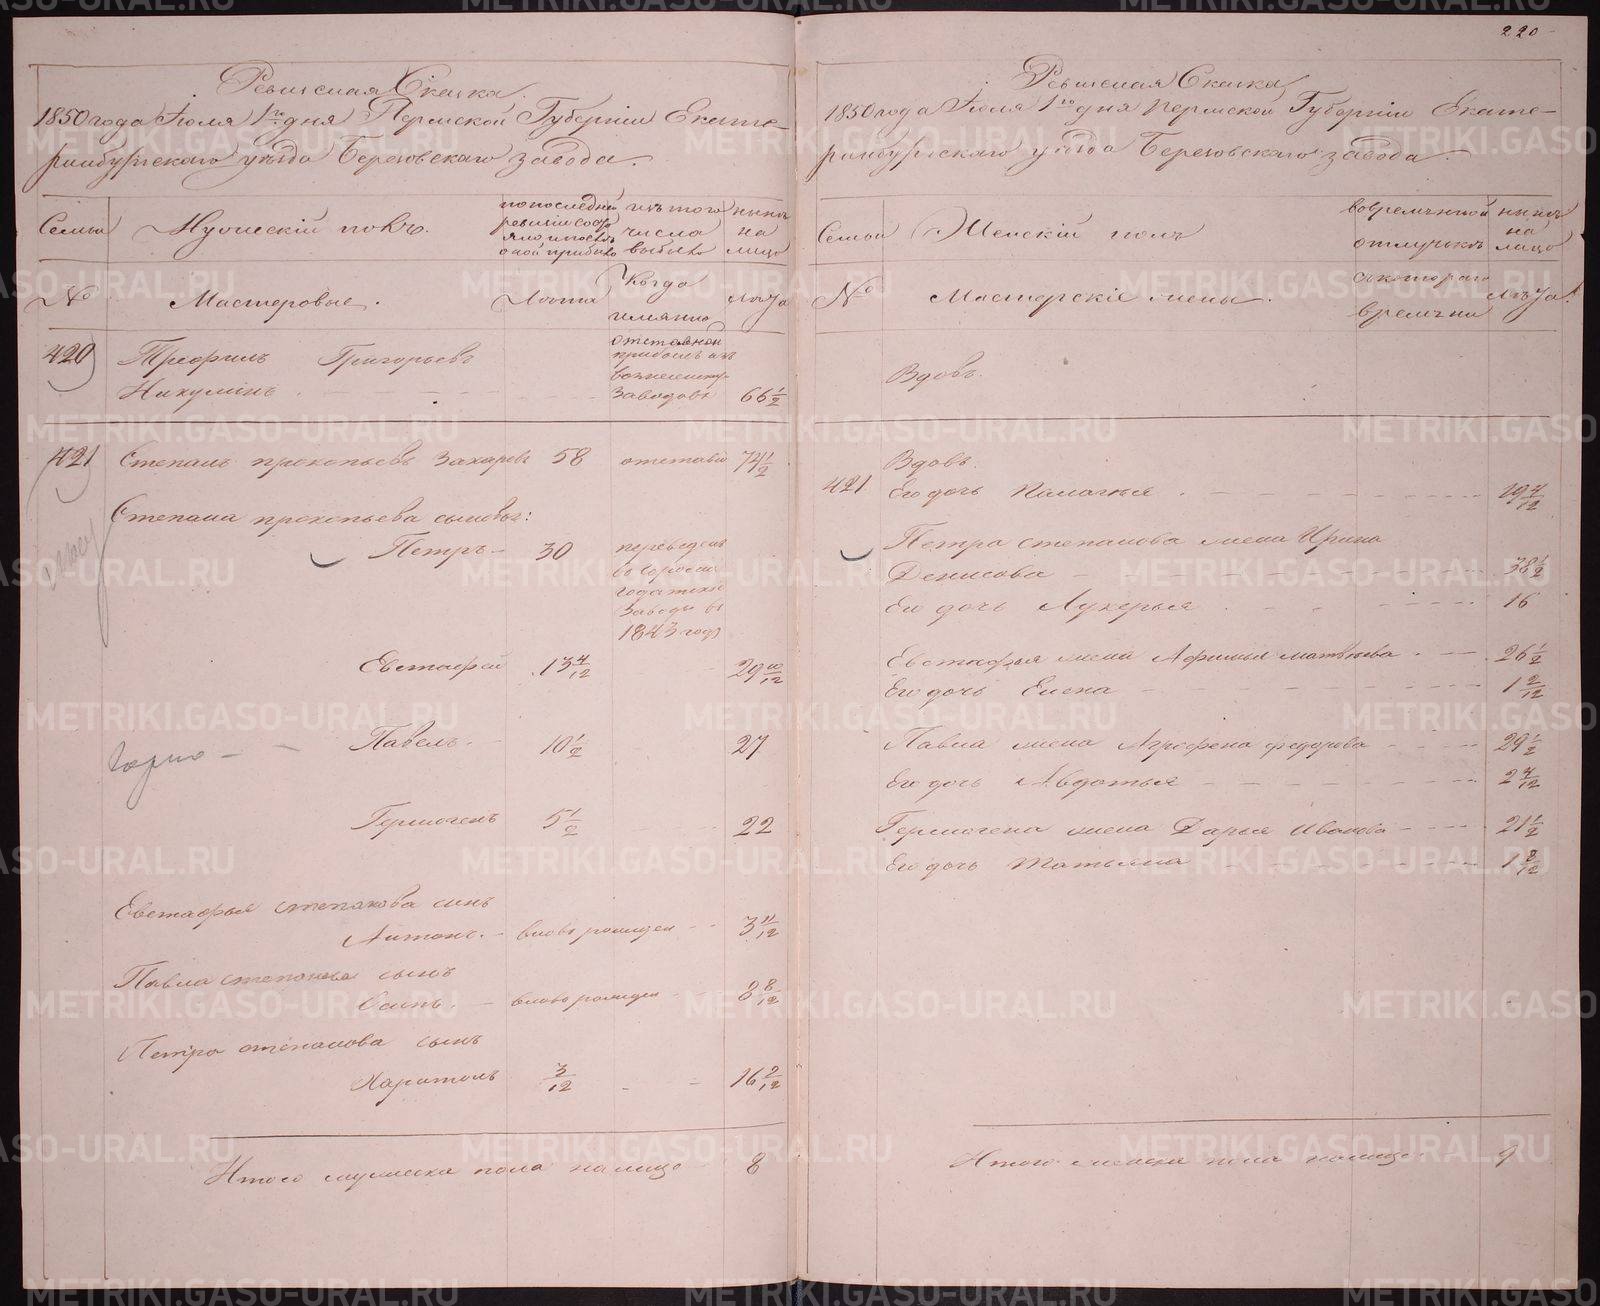 220
Ревизская Сказка.
1850 года Июля 1го дня Пермской Губернiи Екате-
ринбургскаго уезда Березовскаго завода.
Семьи
Мужескiй полъ.
по последней ревизiи состояло и после оной прибыло
изъ того числа выбыло
ныне на лицо
№
Мастеровые.
Лета
Когда именно
Лета
420
Трефилъ Григорьевъ
Никулинъ
отставной прибылъ изъ
заводовъ
66 1/2
421 Степанъ прокопьевъ Захаровъ 58 отставной 74 1/2
Степана прокопьева сыновья:
Петръ 30 переведенъ
заводъ въ
1843 году
Евстафей 13 4/12 29 10/12
Павелъ 10 1/2 27
Гермогенъ 5 1/2 22
Евстафья степанова сынъ
Антонъ вновь рожденъ 3 11/12
Павла степанова сынъ
Осипъ вновь рожденъ 3 8/12
Петра степанова сынъ
Харитонъ 3/12 16 2/12
Итого мужеска пола на лицо 8
Ревизская Сказка
1850 года Июля 1го дня Пермской Губернiи Екате-
ринбургскаго уезда Березовскаго завода.
Семьи
Женскiй полъ
во временной отлучке
ныне на лицо
№
Мастерскiе жены.
съ котораго времени
Лета.
Вдовъ.
Вдовъ.
421 Его дочь Палагья 19 4/12
Петра степанова жена Ирина
Денисова 38 1/2
Его дочь Лукерья 16
Евстафья жена Афимья матвеева 26 1/2
Его дочь Елена 1 2/12
Павла жена Агрефена федорова 29 1/2
Его дочь Авдотья 2 4/12
Гермогена жена Дарья Иванова 21 1/2
Его дочь Татьяна 1 2/12
Итого женска пола на лицо 9
METRIKI.GASO-URAL.RU